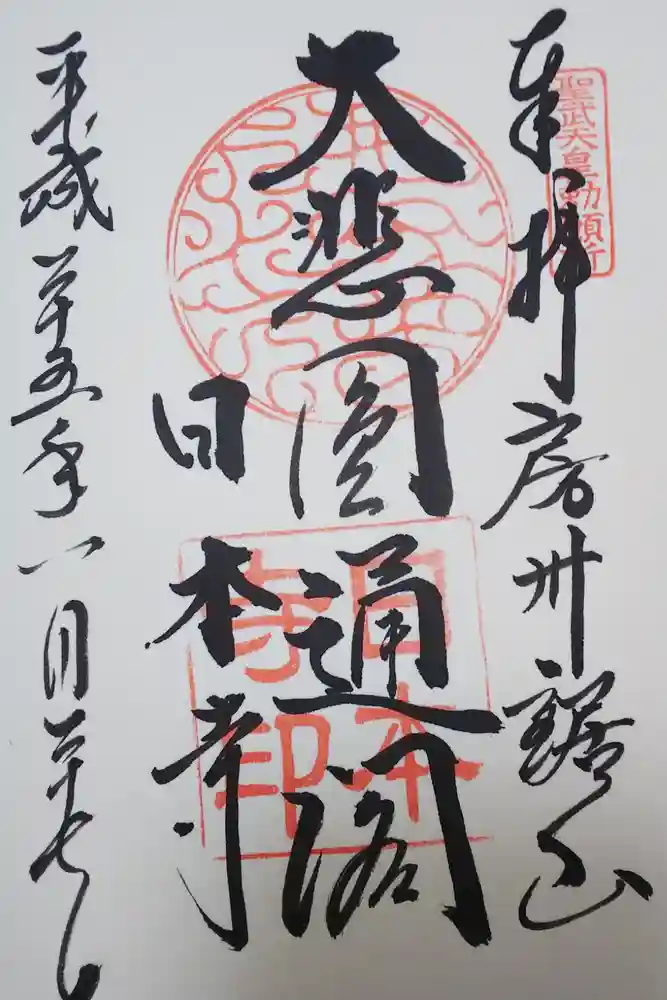 聖武天皇勅願所
奉拝 房州 鋸山
大悲圓通閣
日本寺
日本寺印
平成廿五年八月廿七日